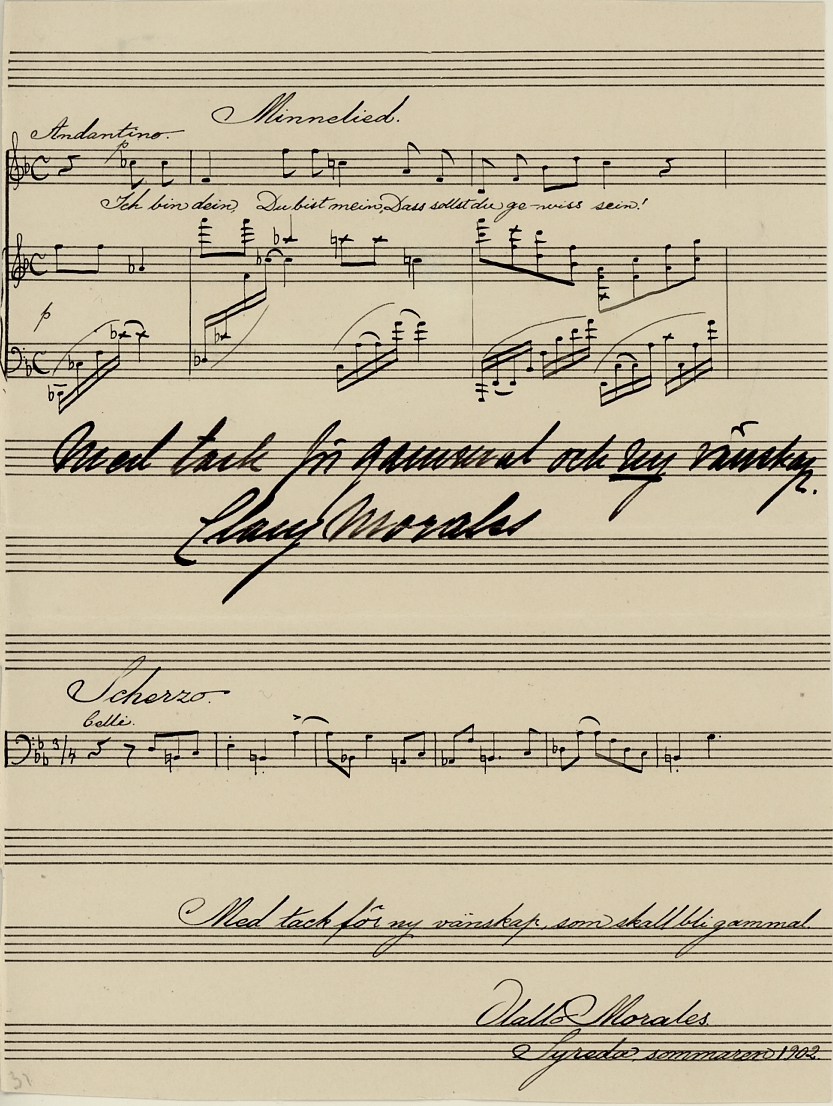 Minnelied.
Andantino.
p
Ich bin dein, Du bist mein, Dass sollst du ge-wiss sein!
p
Med tack för gammal och ny vänskap.
Clary Morales
Scherzo.
Celli.
3/4
Med tack för ny vänskap, som skall bli gammal.
Olallo Morales.
Syreda, sommaren 1902.
31